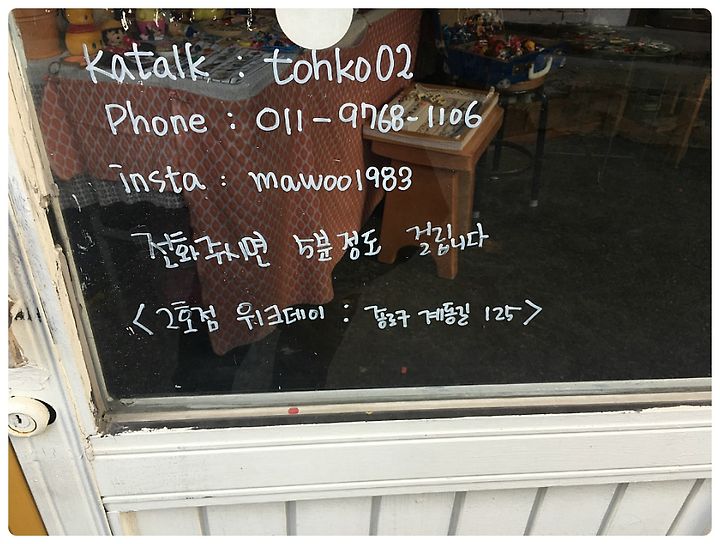 Katalk : tohko02
Phone : 011-9768-1106
insta : mawoo1983
전화주시면 5분정도 걸립니다
<2호점 워크데이 : 종로구 계동길 125>